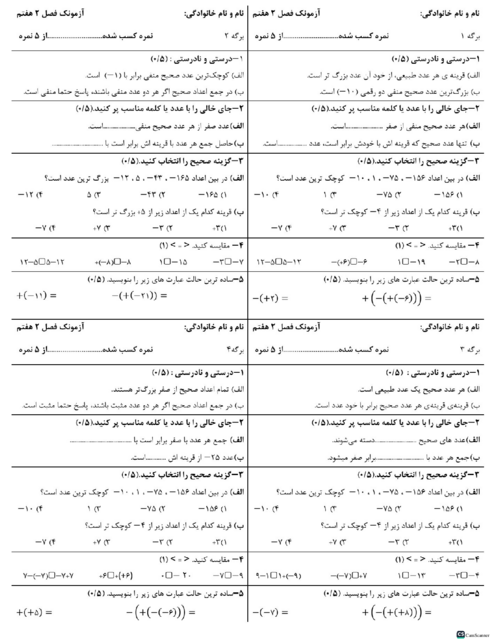 نام و نام خانوادگی: آزمونک فصل ۲ هفتم
برگه ۱ نمره کسب شده..............................از ۵ نمره
۱–درستی و نادرستی (۰/۵)
الف) قرینه ی هر عدد طبیعی، از خود آن عدد بزرگ تر است.
ب) بزرگ‌ترین عدد صحیح منفی دو رقمی (۱۰–) است.
۲–جای خالی را با عدد یا کلمه مناسب پر کنید.(۰/۵)
الف)هر عدد صحیح منفی از صفر ................است.
ب) تنها عدد صحیح که قرینه اش با خودش برابر است، عدد ............است.
۳–گزینه صحیح را انتخاب کنید.(۰/۵)
الف) در بین اعداد ۱۵۶– ، ۷۵– ، ۱ ، ۱۰– کوچک ترین عدد کدام است؟
۱) ۱۵۶– ۲) ۷۵– ۳) ۱ ۴) ۱۰–
ب) قرینه کدام یک از اعداد زیر از ۴– کوچک تر است؟
۱)۳+ ۲) ۳– ۳) ۷+ ۴) ۷–
۴– مقایسه کنید. < = > (۱)
–۲□–۸ ۱□–۱۹ –(+۶)□–۶ ۱۲–۵□۵–۱۲
۵–ساده ترین حالت عبارت های زیر را بنویسید. (۰/۵)
–(+۲) = +(–(+(–۶))) =
نام و نام خانوادگی: آزمونک فصل ۲ هفتم
برگه ۲ نمره کسب شده..............................از ۵ نمره
۱–درستی و نادرستی : (۰/۵)
الف) کوچک‌ترین عدد صحیح منفی برابر با (۱–) است.
ب) در جمع اعداد صحیح اگر هر دو عدد منفی باشند، پاسخ حتما منفی است.
۲–جای خالی را با عدد یا کلمه مناسب پر کنید.(۰/۵)
الف)عدد صفر از هر عدد صحیح منفی................است.
ب)حاصل جمع هر عدد با قرینه اش برابر است با ....................
۳–گزینه صحیح را انتخاب کنید.(۰/۵)
الف) در بین اعداد ۱۶۵– ، ۴۳– ، ۵ ، ۱۲– بزرگ ترین عدد کدام است؟
۱) ۱۶۵– ۲) ۴۳– ۳) ۵ ۴) ۱۲–
ب) قرینه کدام یک از اعداد زیر از ۵+ بزرگ تر است؟
۱)۳+ ۲) ۳– ۳) ۷+ ۴) ۷–
۴– مقایسه کنید. < = > (۱)
–۳□–۷ ۱□–۱۵ +(–۸)□–۸ ۱۲–۵□۵–۱۲
۵–ساده ترین حالت عبارت های زیر را بنویسید. (۰/۵)
+(–۱۱) = –(+(–۲۱)) =
نام و نام خانوادگی: آزمونک فصل ۲ هفتم
برگه ۳ نمره کسب شده..............................از ۵ نمره
۱–درستی و نادرستی : (۰/۵)
الف) هر عدد صحیح یک عدد طبیعی است.
ب) قرینه‌ی قرینه‌ی هر عدد صحیح برابر با خود عدد است.
۲–جای خالی را با عدد یا کلمه مناسب پر کنید.(۰/۵)
الف)عدد های صحیح ....................دسته می‌شوند.
ب)جمع هر عدد با ....................برابر صفر میشود.
۳–گزینه صحیح را انتخاب کنید.(۰/۵)
الف) در بین اعداد ۱۵۶– ، ۷۵– ، ۱ ، ۱۰– کوچک ترین عدد کدام است؟
۱) ۱۵۶– ۲) ۷۵– ۳) ۱ ۴) ۱۰–
ب) قرینه کدام یک از اعداد زیر از ۴– کوچک تر است؟
۱)۳+ ۲) ۳– ۳) ۷+ ۴) ۷–
۴– مقایسه کنید. < = > (۱)
–۳□–۴ ۱□–۱۳ –(–۷)□+۷ ۹–۱□۱+(–۹)
۵–ساده ترین حالت عبارت های زیر را بنویسید. (۰/۵)
–(–۷) = +(–(+(+۸))) =
نام و نام خانوادگی: آزمونک فصل ۲ هفتم
برگه۴ نمره کسب شده..............................از ۵ نمره
۱–درستی و نادرستی : (۰/۵)
الف) تمام اعداد صحیح از صفر بزرگ‌تر هستند.
ب) در جمع اعداد صحیح اگر هر دو عدد مثبت باشند، پاسخ حتما مثبت است.
۲–جای خالی را با عدد یا کلمه مناسب پر کنید.(۰/۵)
الف) جمع هر عدد با صفر برابر است با ............................
ب) عدد ۲۵– از قرینه اش ............است.
۳–گزینه صحیح را انتخاب کنید.(۰/۵)
الف) در بین اعداد ۱۵۶– ، ۷۵– ، ۱ ، ۱۰– کوچک ترین عدد کدام است؟
۱) ۱۵۶– ۲) ۷۵– ۳) ۱ ۴) ۱۰–
ب) قرینه کدام یک از اعداد زیر از ۴– کوچک تر است؟
۱)۳+ ۲) ۳– ۳) ۷+ ۴) ۷–
۴– مقایسه کنید. < = > (۱)
–۷□–۹ ۰□– ۲۰ +۶□+(+۶) ۷–(–۷)□–۷+۷
۵–ساده ترین حالت عبارت های زیر را بنویسید. (۰/۵)
+(+۵) = –(+(–(–۶))) =
CamScanner